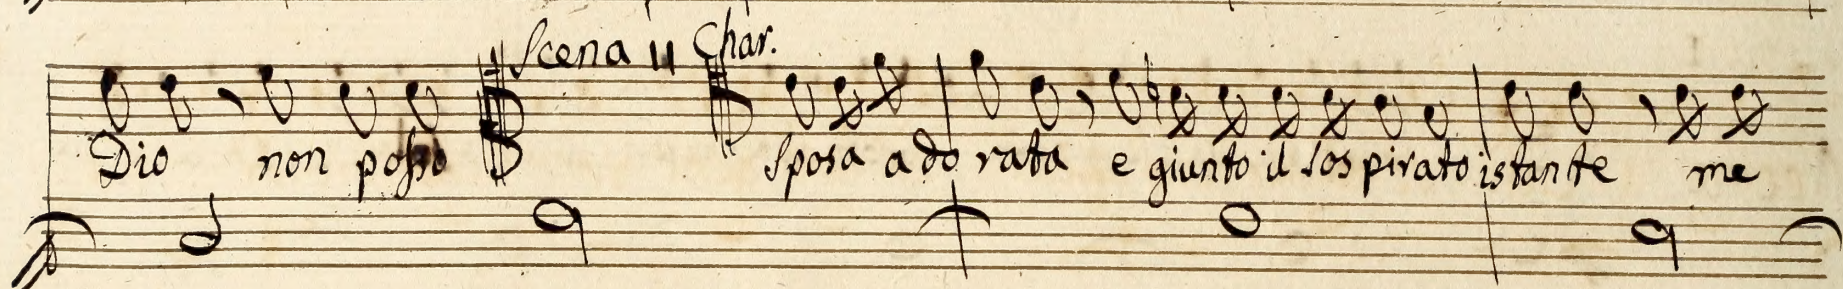 Scena 11 Char.
Dio non posso Sposa adorata e giunto il sospirato istante me